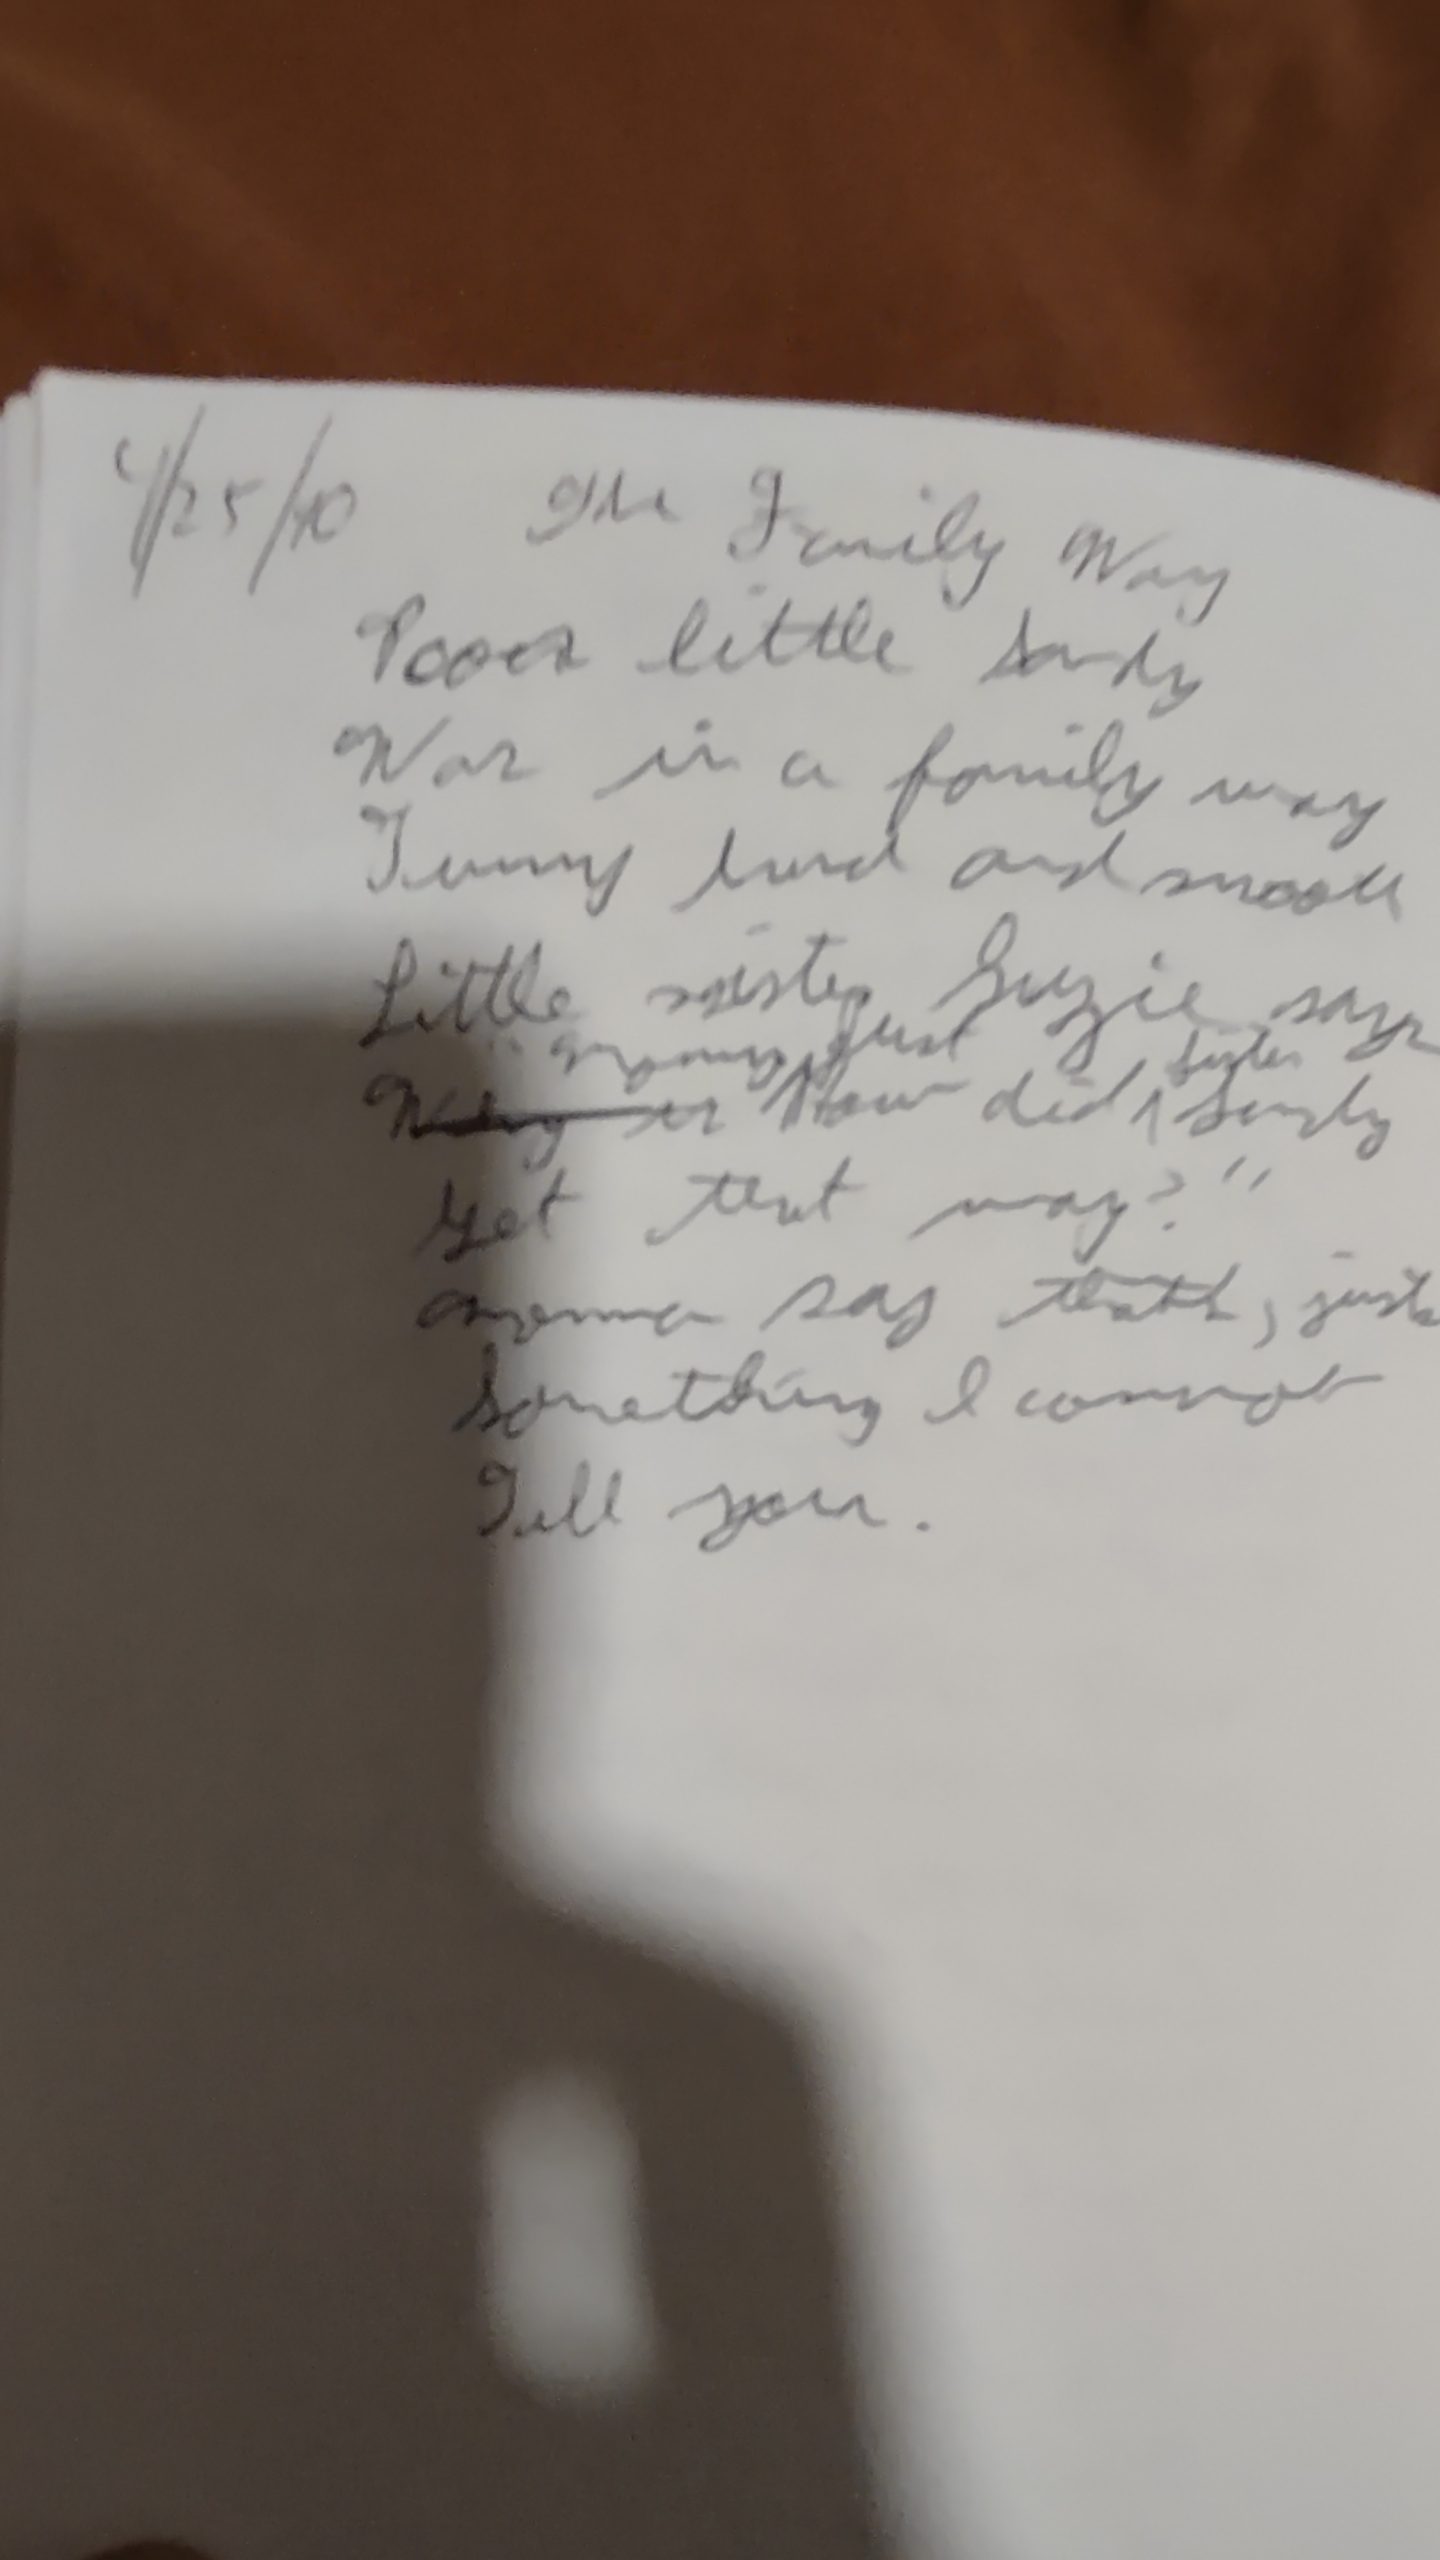 4/25/10 The Family Way
Pooor little Sandy
Was in a family way
Tummy and
Little sister Suzie says
"Momma, just sister
How did Sandy
get that way?"
Momma say that, just
Something I cannot
Tell you.